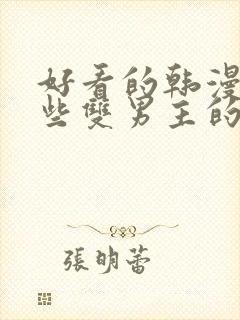 好看的韩漫
些雙男主的
張明蕾